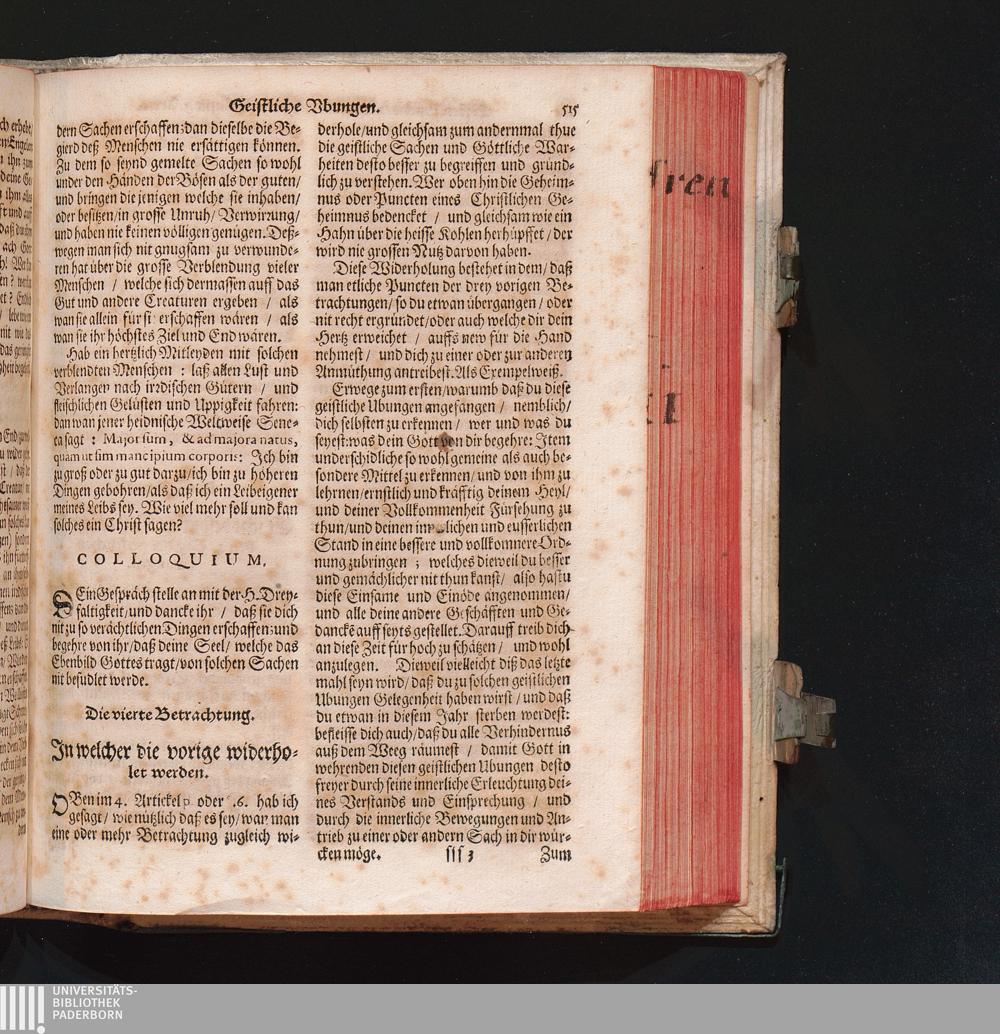 Geistliche Vbungen. 515
dern Sachen erschaffen: dan dieselbe die Be-
gierd deß Menschen nie ersättigen können.
Zu dem so seynd gemelte Sachen so wohl
under den Händen der Bösen als der guten/
und bringen die jenigen welche sie inhaben/
oder besitzen/ in grosse Unruh/ Verwirzung/
und haben nie keinen völligen genügen. Deß-
wegen man sich nit gnugsam zu verwunde-
ren hat über die grosse Verblendung vieler
Menschen / welche sich dermassen auff das
Gut und andere Creaturen ergeben / als
wan sie allein für si erschaffen wären / als
wan sie ihr höchstes Ziel und End wären.
Hab ein hertzlich Mitleyden mit solchen
verblendten Menschen : laß allen Lust und
Verlangen nach irzdischen Gütern / und
fleischlichen Gelüsten und Uppigkeit fahren:
dan wan jener heidnische Weltweise Sene-
ca sagt : Major sum, & ad majora natus,
quam ut sim mancipium corporis: Ich bin
zu groß oder zu gut darzu/ ich bin zu höheren
Dingen gebohren/ als daß ich ein Leibeigener
meines Leibs sey. Wie viel mehr soll und kan
solches ein Christ sagen?
COLLOQUIUM,
SEin Gespräch stelle an mit der H. Drey-
faltigkeit/ und dancke ihr / daß sie dich
nit zu so verächtlichen Dingen erschaffen: und
begehre von ihr/ daß deine Seel/ welche das
Ebenbild Gottes tragt/ von solchen Sachen
nit besudlet werde.
Die vierte Betrachtung.
In welcher die vorige widerho-
let werden.
OBen im 4. Artickel p oder .6. hab ich
gesagt/ wie nützlich daß es sey/ wan man
eine oder mehr Betrachtung zugleich wi-
derhole/ und gleichsam zum andernmal thue
die geistliche Sachen und Göttliche War-
heiten desto besser zu begreiffen und gründ-
lich zu verstehen. Wer oben hin die Geheim-
nus oder Puncten eines Christlichen Ge-
heimnus bedencket / und gleichsam wie ein
Hahn über die heisse Kohlen herhüpffet / der
wird nie grossen Nutz darvon haben.
Diese Widerholung bestehet in dem/ daß
man etliche Puncten der drey vorigen Be-
trachtungen/ so du etwan übergangen / oder
nit recht ergründet/ oder auch welche dir dein
Hertz erweichet / auffs new für die Hand
nehmest / und dich zu einer oder zur anderen
Anmüthung antreibest. Als Exempelweiß.
Erwege zum ersten/ warumb daß du diese
geistliche Ubungen angefangen / nemblich/
dich selbsten zu erkennen / wer und was du
seyest: was dein Gott von dir begehre: Item
underschidliche so wohl gemeine als auch be-
sondere Mittel zu erkennen/ und von ihm zu
lehrnen/ ernstlich und kräfftig deinem Heyl/
und deiner Vollkommenheit Fürsehung zu
thun/ und deinen innerlichen und eusserlichen
Stand in eine bessere und vollkomnere Ord-
nung zubringen ; welches dieweil du besser
und gemächlicher nit thun kanst/ also hastu
diese Einsame und Einöde angenommen/
und alle deine andere Geschäfften und Ge-
danckẽ auff seyts gestellet. Darauff treib dich
an diese Zeit für hoch zu schätzen / und wohl
anzulegen. Dieweil vielleicht diß das letzte
mahl seyn wird/ daß du zu solchen geistlichen
Ubungen Gelegenheit haben wirst / und daß
du etwan in diesem Jahr sterben werdest:
befleisse dich auch/ daß du alle Verhindernus
auß dem Weeg räumest / damit Gott in
wehrenden diesen geistlichen Ubungen desto
freyer durch seine innerliche Erleuchtung dei-
nes Verstands und Einsprechung / und
durch die innerliche Bewegungen und An-
trieb zu einer oder andern Sach in dir wür-
cken möge. sss 3 Zum
UNIVERSITÄTS-
BIBLIOTHEK
PADERBORN